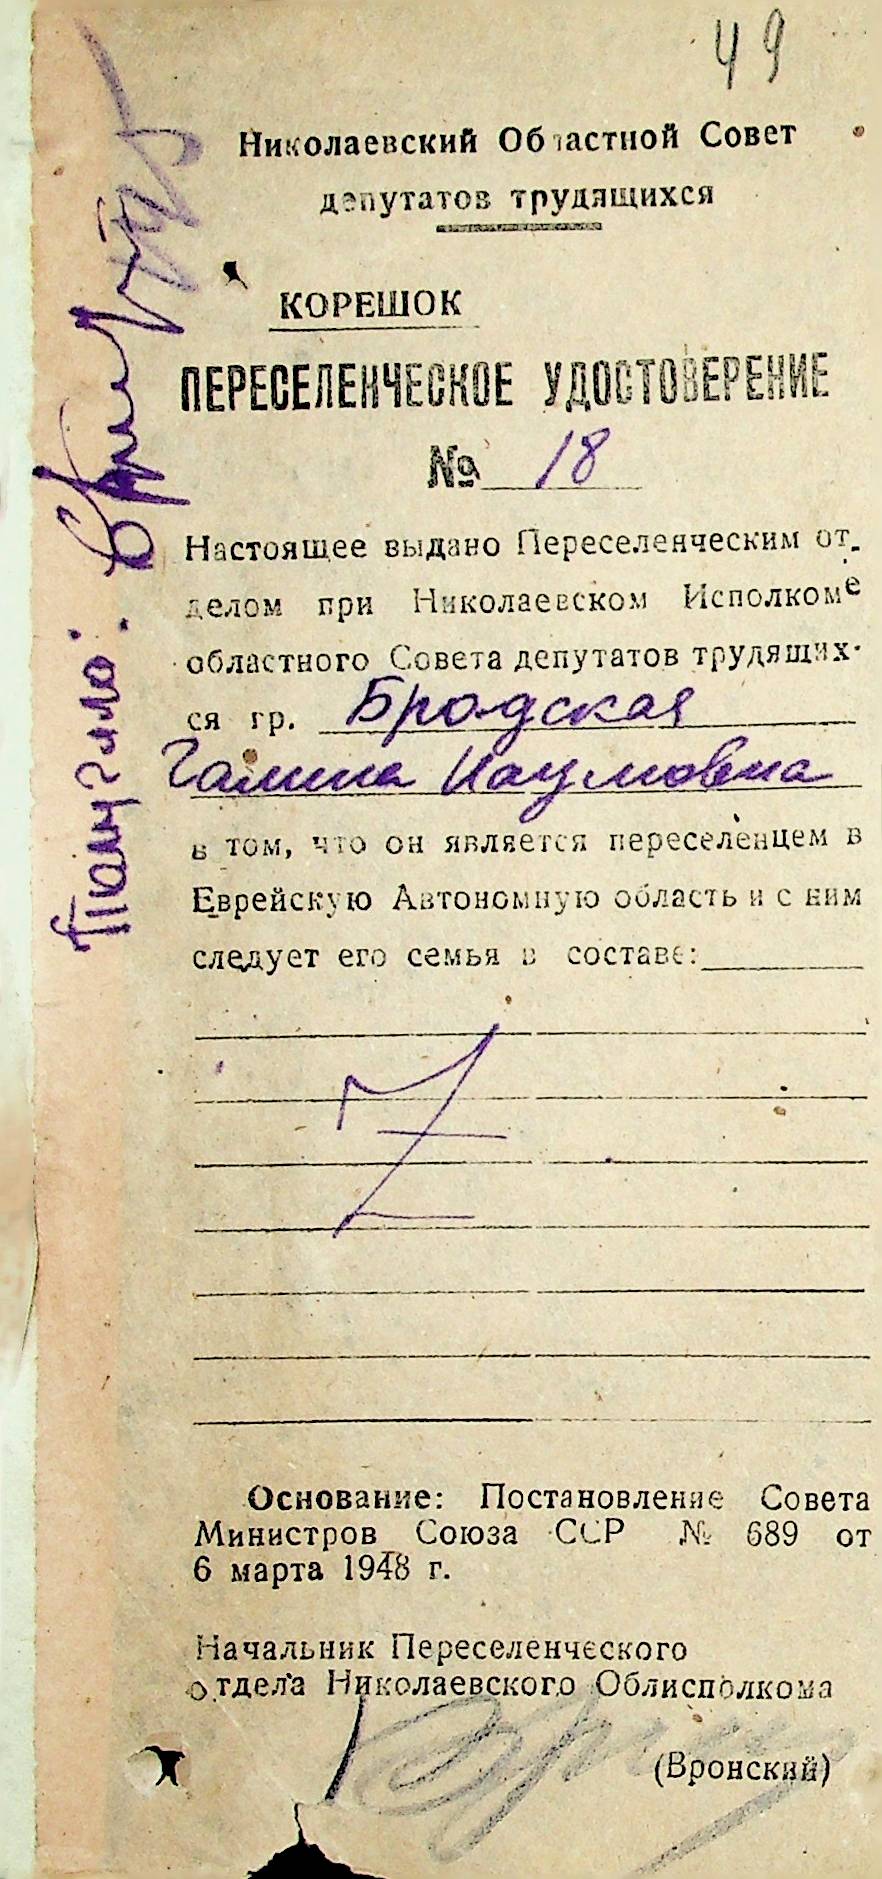 49
Николаевский Областной Совет
депутатов трудящихся
КОРЕШОК
ПЕРЕСЕЛЕНЧЕСКОЕ УДОСТОВЕРЕНИЕ
№ 18
Настоящее выдано Переселенческим от-
делом при Николаевском Исполкоме
областного Совета депутатов трудящих-
ся гр. Бродская
Галина Наумовна
в том, что он является переселенцем в
Еврейскую Автономную область и с ним
следует его семья в составе:
Основание: Постановление Совета
Министров Союза ССР № 689 от
6 марта 1948 г.
Начальник Переселенческого
отдела Николаевского Облисполкома
(Вронский)